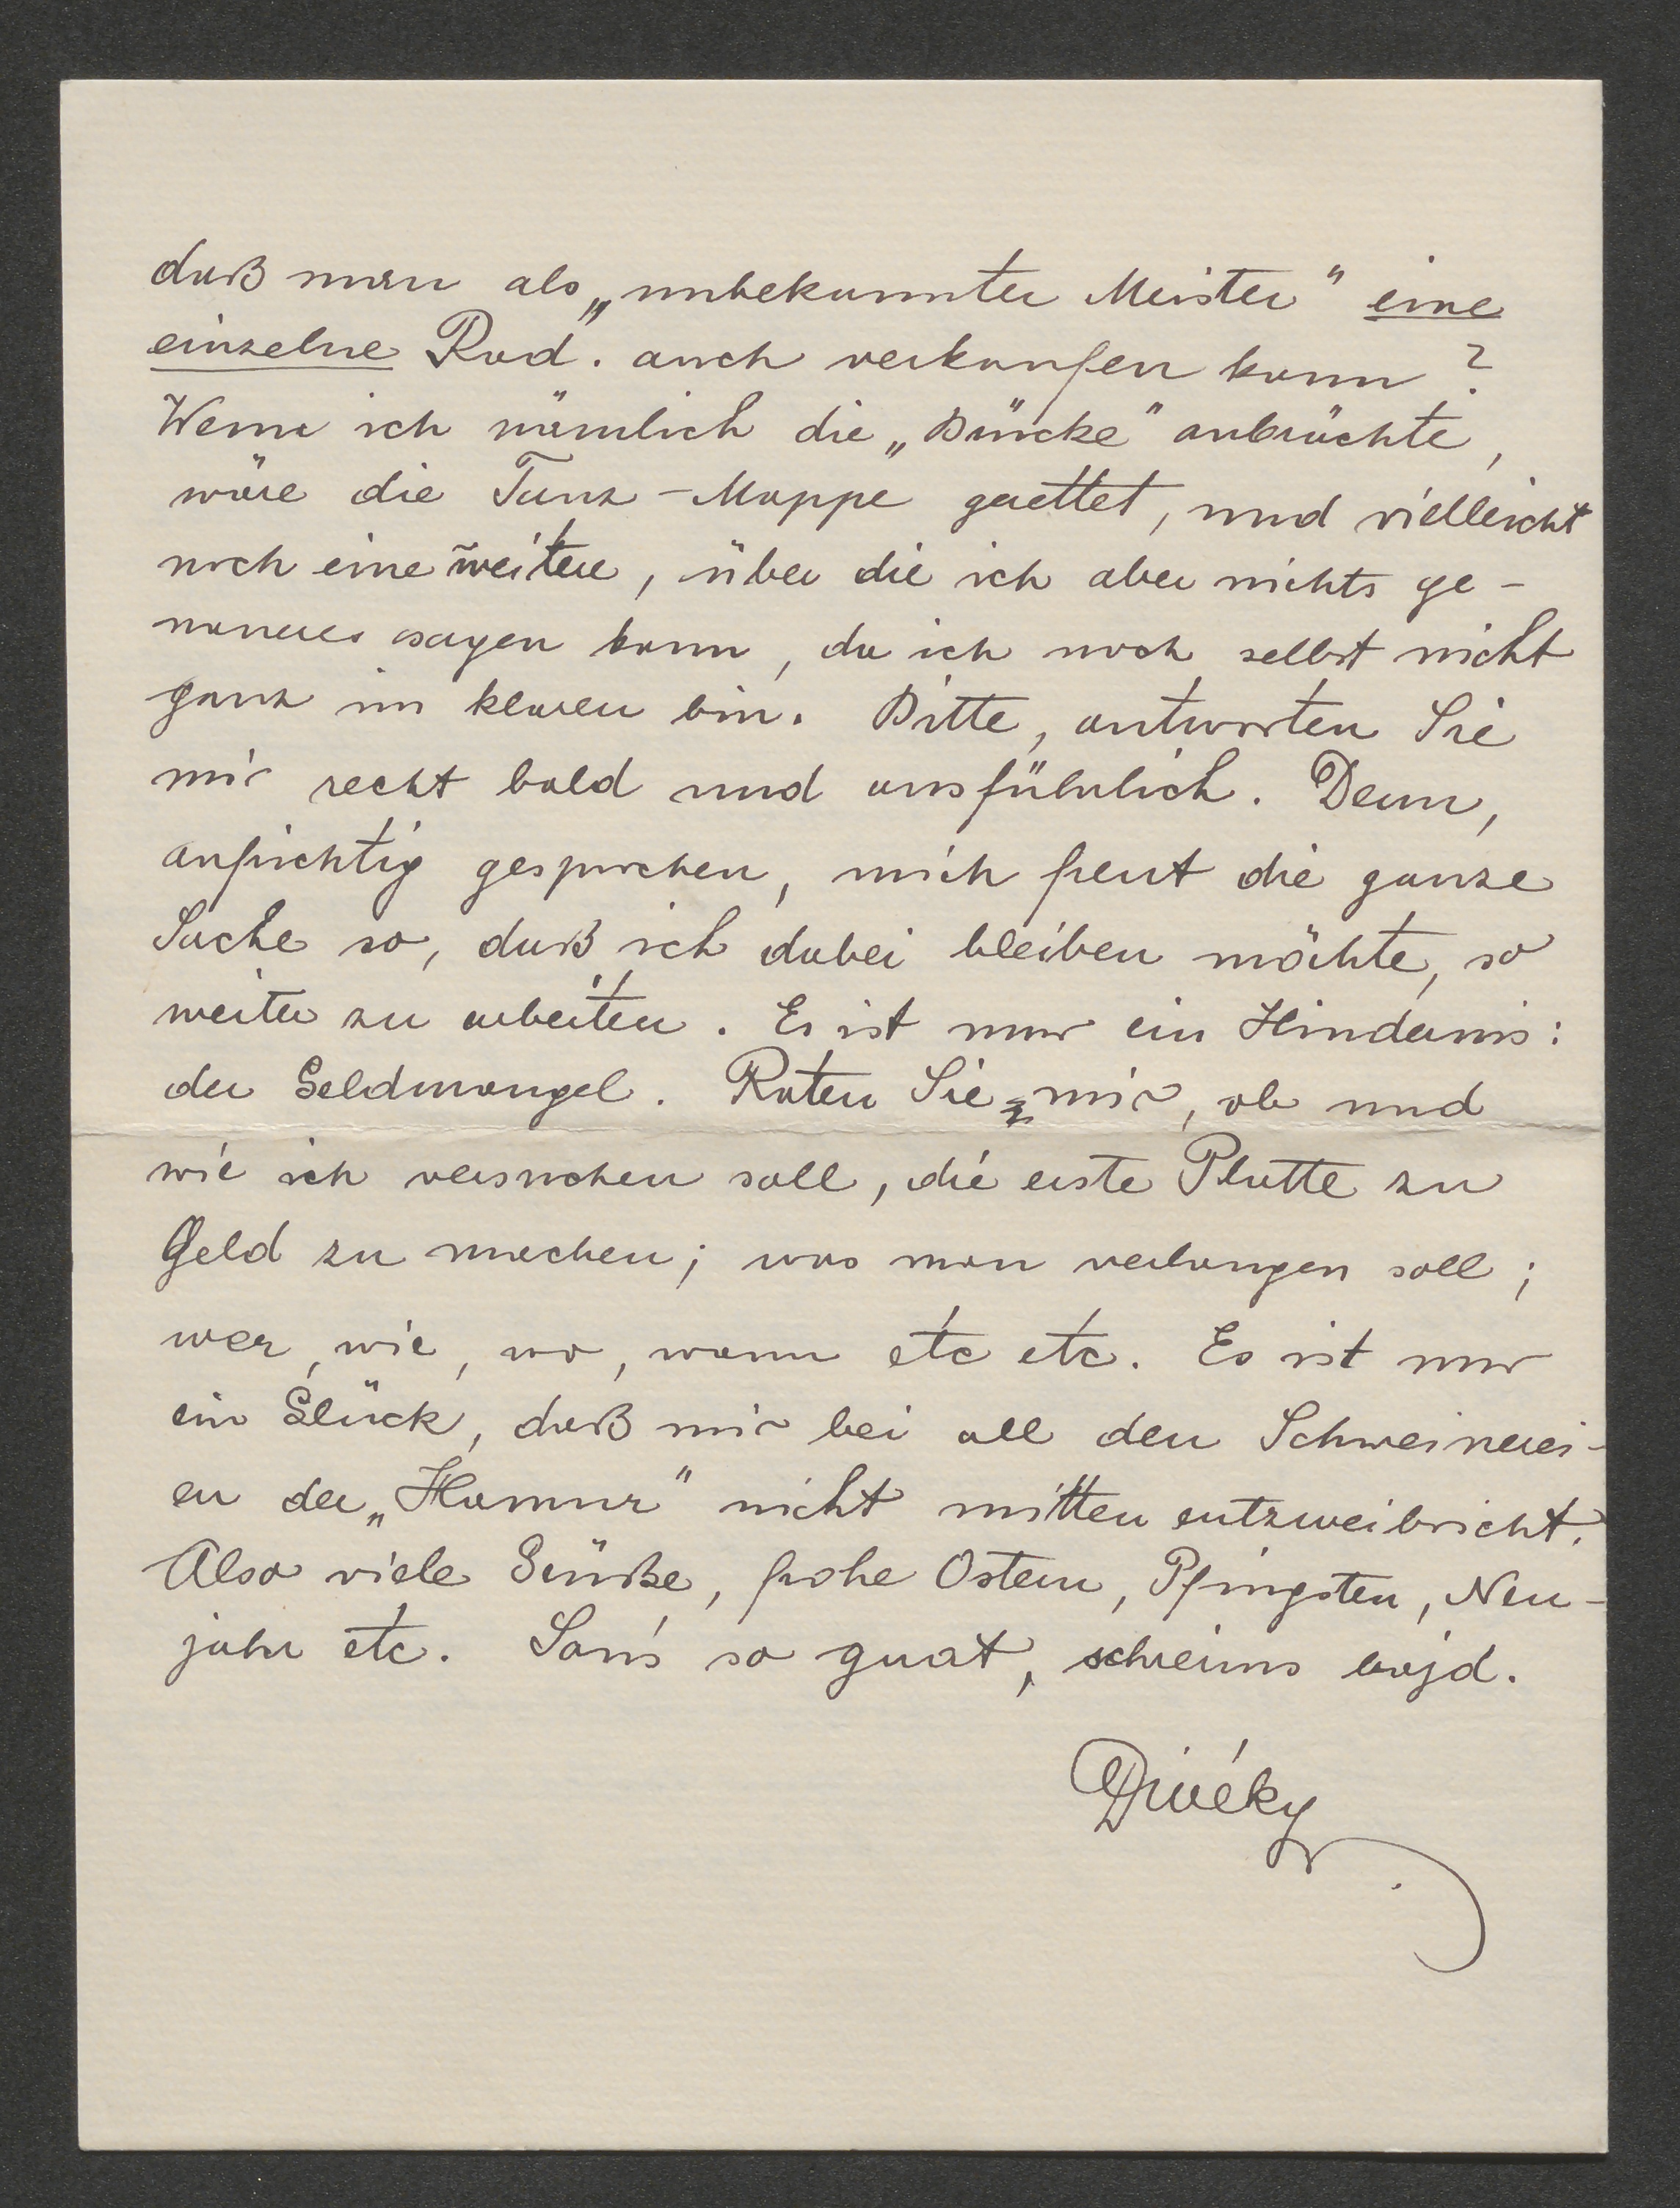 daß man als „unbekannter Meister" eine
einzelne Rad. auch verkaufen kann?
Wenn ich nämlich die „Brücke" anbrächte,
wäre die Tanz-Mappe gerettet, und vielleicht
noch eine weitere, über die ich aber nichts ge-
naueres sagen kann, da ich noch selbst nicht
ganz im klaren bin. Bitte, antworten Sie
mir recht bald und ausführlich. Denn,
aufrichtig gesprochen, mich freut die ganze
Sache so, daß ich dabei bleiben möchte, so
weiter zu arbeiten. Es ist nur ein Hindernis:
der Geldmangel. Raten Sie mir, ob und
wie ich versuchen soll, die erste Platte zu
Geld zu machen; was man verlangen soll;
wer, wie, wo, wann etc etc. Es ist nur
ein Glück, daß mir bei all den Schweinerei-
en der „Hamur" nicht mitten entzweibricht.
Also viele Grüße, frohe Ostern, Pfingsten, Neu-
jahr etc. San's so guat, schreims bojd.
Divéky